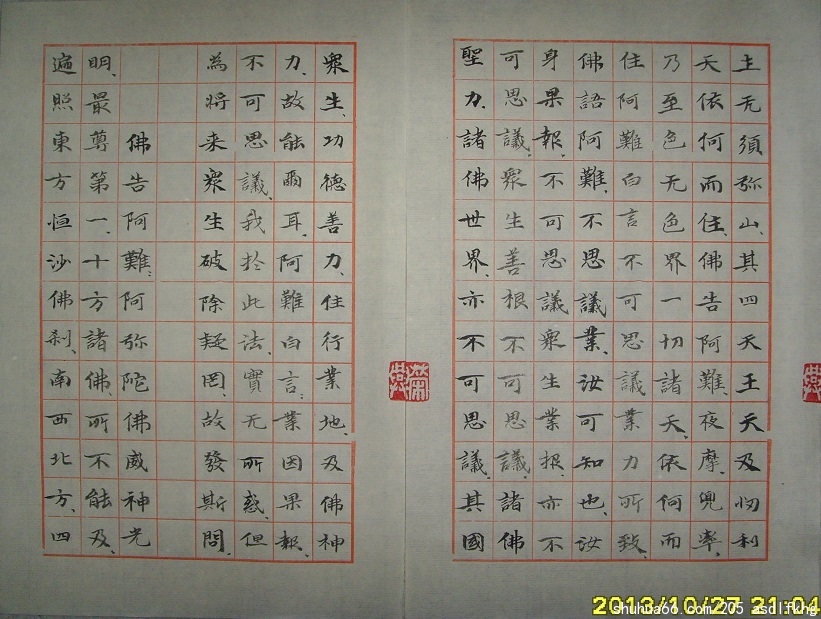 土无須弥山、其四天王天及忉利
天依何而住、佛告阿難、夜摩、兜率、
乃至色无色界一切諸天、依何而
住阿難白言不可思議業力所致、
佛語阿難、不思議業、汝可知也、汝
身果報、不可思議衆生業报亦不
可思議、衆生善根不可思議、諸佛
聖力、諸佛世界、亦不可思議、其國
衆生、功德善力、住行業地、及佛神
力、故能爾耳、阿難白言、業因果報、
不可思議、我於此法、實无所惑、但
為将来衆生破除疑罔、故發斯問、
佛告阿難、阿弥陀佛威神光
明、最尊第一、十方諸佛、所不能及、
遍照東方恒沙佛刹、南西北方、四
2013/10/27 21:04
shuhua66.com/205 asdlfkhg